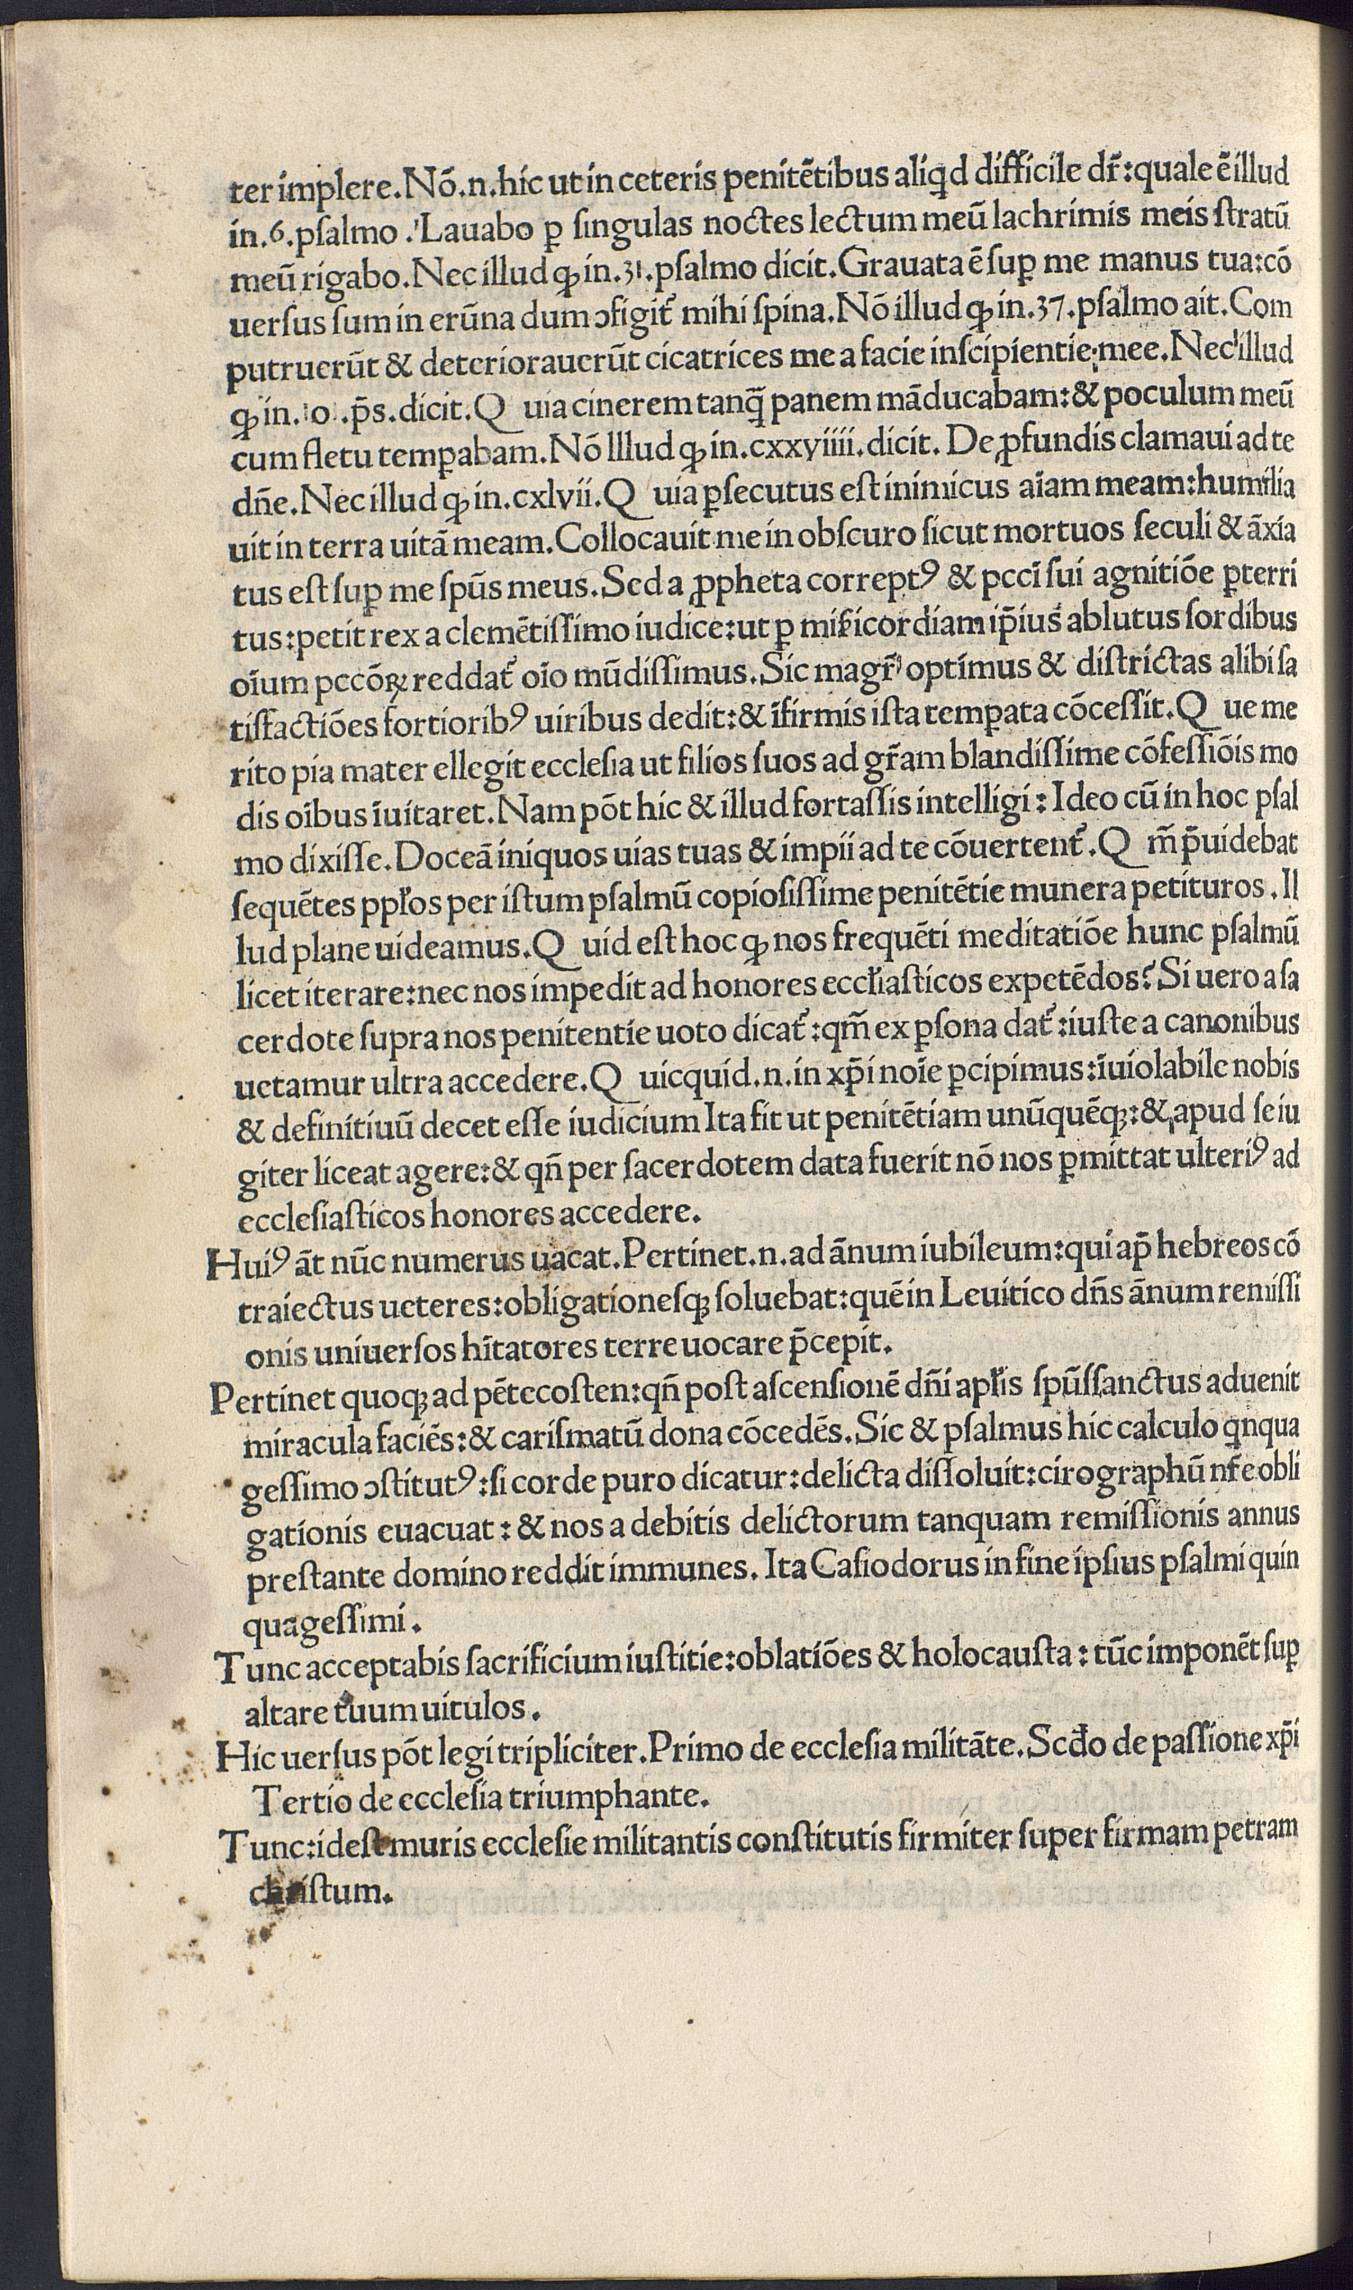 ter implere. Nō.n.hic ut in ceteris penitētibus aliqd difficile dr̄: quale ē illud
in.6.psalmo. Lauabo ꝑ singulas noctes lectum meū lachrimis meis stratū
meū rigabo. Nec illud ꝙ in.31.psalmo dicit. Grauata ē suꝑ me manus tua: cō
uersus sum in erūna dum ↄfigit᷑ mihi spina. Nō illud ꝙ in.37.psalmo ait. Com
putruerūt & deteriorauerūt cicatrices me a facie inscipientie mee. Nec illud
ꝙ in. p̄s.dicit. Q uia cinerem tanq̄ panem māducabam: & poculum meū
cum fletu temꝑabam. Nō lllud ꝙ in.cxxyiiii.dicit. De ꝓfundis clamaui ad te
dn̄e. Nec illud ꝙ in.cxlvii. Q uia ꝑsecutus est inimicus aīam meam: humilia
uit in terra uitā meam. Collocauit me in obscuro sicut mortuos seculi & āxia
tus est suꝑ me spūs meus. Sed a ꝓpheta correptꝰ & pccī sui agnitiōe ꝑterri
tus: petit rex a clemētissimo iudice: ut ꝑ mīicordiam ip̄ius ablutus sordibus
oīum pccōꝝ reddat᷑ oīo mūdissimus. Sic magr̄ optimus & districtas alibi sa
tisfactiōes fortioribꝰ uiribus dedit: & īfirmis ista temꝑata cōcessit. Q ue me
rito pia mater ellegit ecclesia ut filios suos ad gr̄am blandissime cōfessiōis mo
dis oībus īuitaret. Nam pōt hic & illud fortassis intelligi: Ideo cū in hoc psal
mo dixisse. Doceā iniquos uias tuas & impii ad te cōuertent᷑. Q m̄ p̄uidebat
sequētes ppłos per istum psalmū copiosissime penitētie munera petituros. Il
lud plane uideamus. Q uid est hoc ꝙ nos frequēti meditatiōe hunc psalmū
licet iterare: nec nos impedit ad honores eccłiasticos expetēdos? Si uero a sa
cerdote supra nos penitentie uoto dicat᷑: qm̄ ex ꝑsona dat᷑: iuste a canonibus
uetamur ultra accedere. Q uicquid.n.in xp̄i noīe ꝑcipimus: īuiolabile nobis
& definitiuū decet esse iudicium Ita fit ut penitētiam unūquēqꝫ: & apud se iu
giter liceat agere: & qn̄ per sacerdotem data fuerit nō nos ꝑmittat ulteriꝰ ad
ecclesiasticos honores accedere.
Huiꝰ āt nūc numerus uacat. Pertinet.n.ad ānum iubileum: qui ap̄ hebreos cō
traiectus ueteres: obligationesqꝫ soluebat: quē in Leuitico dn̄s ānum remissi
onis uniuersos hītatores terre uocare p̄cepit.
Pertinet quoqꝫ ad pētecosten: qn̄ post ascensionē dn̄i apłis spūssanctus aduenit
miracula faciēs: & carismatū dona cōcedēs. Sic & psalmus hic calculo qnqua
gessimo ↄstitutꝰ: si corde puro dicatur: delicta dissoluit: cirographū nr̄e obli
gationis euacuat: & nos a debitis delictorum tanquam remissionis annus
prestante domino reddit immunes. Ita Casiodorus in fine ipsius psalmi quin
quagessimi.
Tunc acceptabis sacrificium iustitie: oblatiōes & holocausta: tūc imponēt suꝑ
altare tuum uitulos.
Hic uersus pōt legi tripliciter. Primo de ecclesia militāte. Scđo de passione xp̄i
Tertio de ecclesia triumphante.
Tunc: idest muris ecclesie militantis constitutis firmiter super firmam petram
christum.